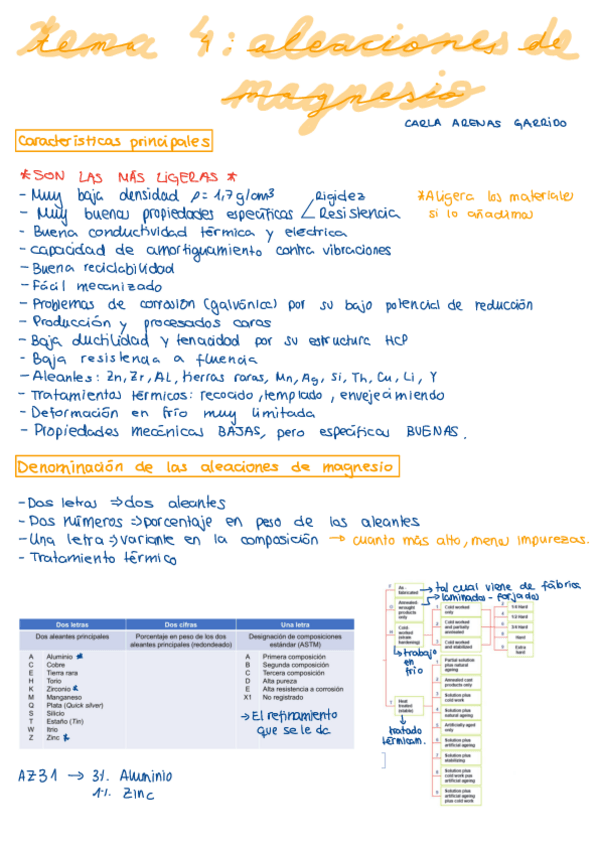 tema 4: aleaciones de
magnesio
CARLA ARENAS GARRIDO
Características principales
*SON LAS MÁS LIGERAS *
- Muy baja densidad ρ= 1,7 g/cm³
- Muy buenas propiedades específicas
Rigidez
Resistencia
*Aligera los materiales
si lo añadimos
- Buena conductividad térmica y eléctrica
- capacidad de amortiguamiento contra vibraciones
- Buena reciclabilidad
- Fácil mecanizado
- Problemas de corrosión (galvánica) por su bajo potencial de reducción
- Producción y procesados caros
- Baja ductilidad y tenacidad por su estructura HCP
- Baja resistencia a fluencia
- Aleantes: Zn, Zr, AL, tierras raras, Mn, Ag, Si, Th, Cu, Li, Y
- Tratamientos térmicos: recocido, templado, envejecimiento
- Deformación en frío muy limitada
- Propiedades mecánicas BAJAS, pero específicas BUENAS.
Denominación de las aleaciones de magnesio
- Dos letras ⇒ dos aleantes
- Dos números ⇒ porcentaje en peso de los aleantes
- Una letra ⇒ variante en la composición → cuanto más alto, menos impurezas.
- Tratamiento térmico
Dos letras
Dos aleantes principales
A Aluminio *
C Cobre
E Tierra rara
H Torio
K Zirconio *
M Manganeso
Q Plata (Quick silver)
S Silicio
T Estaño (Tin)
W Itrio
Z Zinc *
Dos cifras
Porcentaje en peso de los dos
aleantes principales (redondeado)
Una letra
Designación de composiciones
estándar (ASTM)
A Primera composición
B Segunda composición
C Tercera composición
D Alta pureza
E Alta resistencia a corrosión
X1 No registrado
→ El refinamiento
que se le da
F As - fabricated
→ tal cual viene de fábrica
O Annealed-wrought products only
→ laminados - forjados
H Cold-worked (strain hardening)
↳ trabajo
en
frío
1 Cold worked only
2 Cold worked and partially annealed
3 Cold worked and stabilized
1/4 Hard
1/2 Hard
3/4 Hard
Hard
Extra hard
T Heat treated (stable)
tratado
térmicam.
1 Partial solution plus natural ageing
2 Annealed cast products only
3 Solution plus cold work
4 Solution plus natural ageing
5 Artificially aged only
6 Solution plus artificial ageing
7 Solution plus stabilizing
8 Solution plus cold work plus artificial ageing
9 Solution plus artificial ageing plus cold work
AZ31 → 3%. Aluminio
1%. Zinc